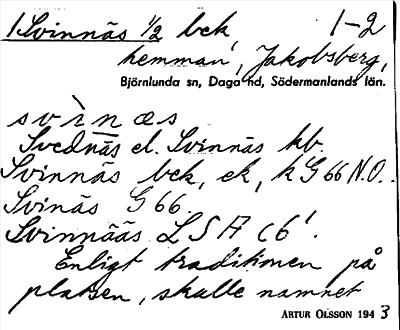 1 Svinnäs 1/2 bek 1–2
hemman, Jakobsberg,
Björnlunda sn, Daga hd, Södermanlands län.
svìnæs
Svednäs el. Svinnäs hb.
Svinnäs bek, ek, k G 66 N.O.
Svinäs G 66.
Svinnääs LSA C6¹.
Enligt traditionen på
platsen, skulle namnet
ARTUR OLSSON 1943